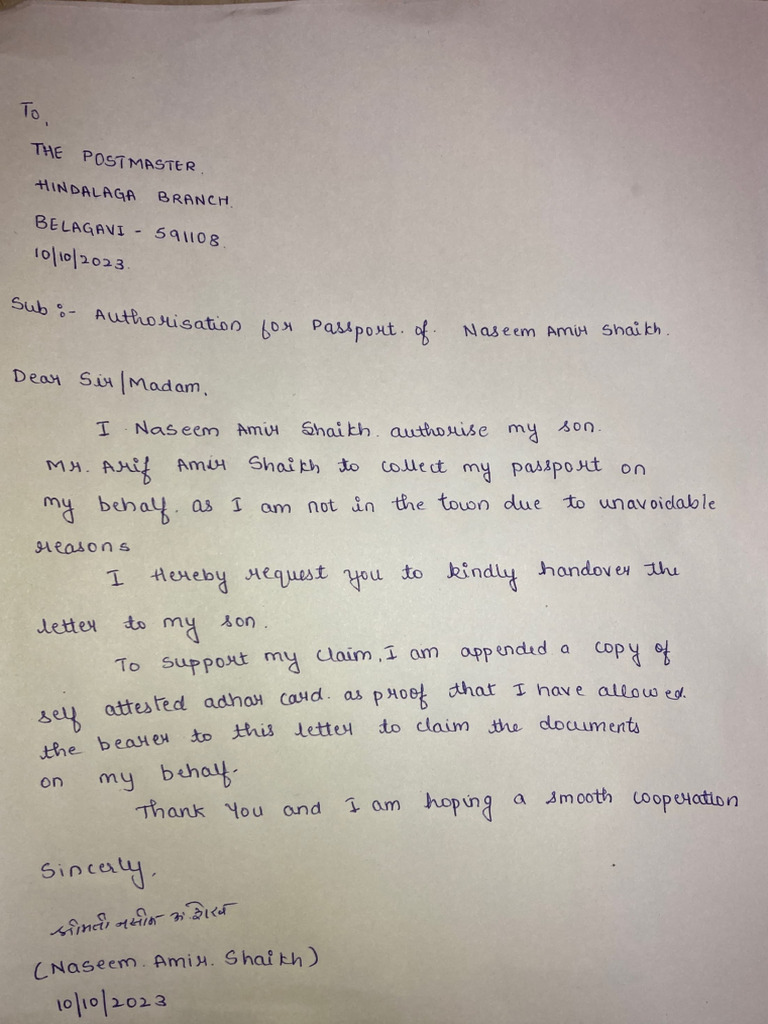 To,
THE POSTMASTER.
HINDALAGA BRANCH.
BELAGAVI - 591108.
10/10/2023.
Sub :- Authorisation for Passport. of. Naseem Amir Shaikh.
Dear Sir/Madam,
I Naseem Amir Shaikh. authorise my son.
Mr. Arif Amir Shaikh to collect my passport on
my behalf. as I am not in the town due to unavoidable
reasons
I Hereby request you to kindly handover the
letter to my son.
To support my claim, I am appended a copy of
self attested adhar card. as proof that I have allowed.
the bearer to this letter to claim the documents
on my behalf.
Thank You and I am hoping a smooth cooperation
Sincerly,
श्रीमती नसीम अ. शेख
(Naseem. Amir. Shaikh)
10/10/2023